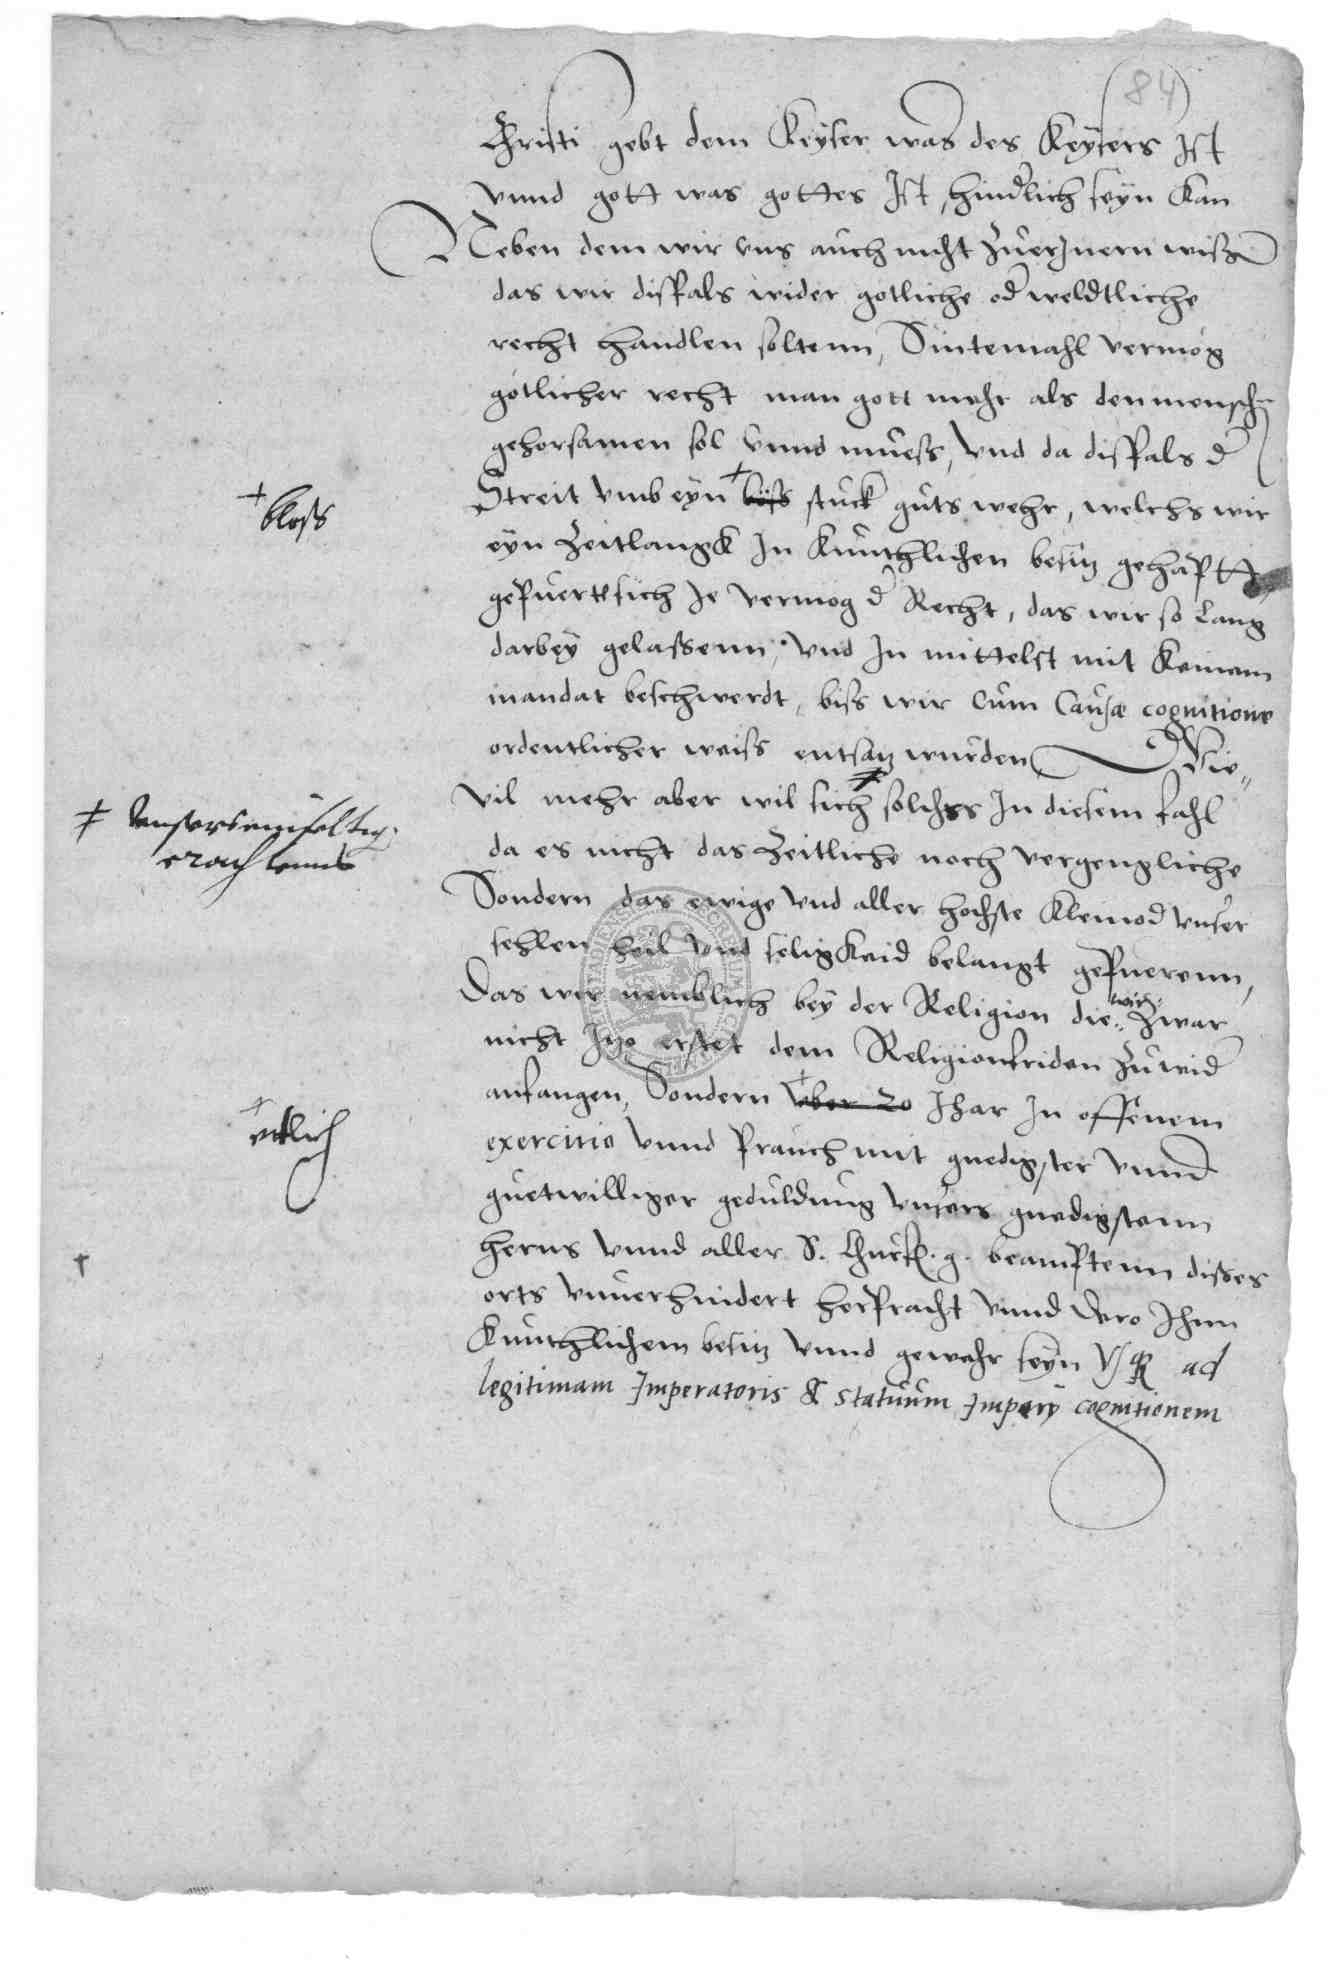 84
Christi gebt dem Keÿser was des Keÿsers Ist
vnnd gott was gottes Ist, hinderlich seÿn kan
Neben dem wir vns auch nicht zuerInern wissen
das wir dissfals wider gotliche oder weldtliche
recht handlen soltenn, Sintemahl vermög
götlicher recht man gott mehr als den menschen
gehorsamen sol vnnd muess, vnd da dissfals der
Streit vmb eÿn + stuck guts wehr, welchs wir
+ bloss
eÿn Zeitlangk In kunthlichen besitz gehaptt
gepuertt sich Je vermog der Recht, das wir so lang
darbeÿ gelassenn, vnd In mittelst mit keinem
mandat beschwerdt, biss wir Cum Causæ cognitione
ordentlicher weiss entsatz wurden Wie-
vil mehr aber wil sich ≠ solchss In diesem fahl
≠ vnsers einfeltig
erachtenns
da es nicht das Zeitliche noch vergengliche
Sondern das ewige vnd aller hochste kleinod vnser
sehlen heil vnd seligkaid belangt gepuerenn,
Das wir nemblich beÿ der Religion die wir Zwar
nicht Itzo erstet dem Religionfriden zu wider
anfangen, Sondern + vber 20 Ihar In offenem
+ etlich
exercitio vnnd prauch mit gnedigster vnnd
guetwilliger geduldung vnsers gnedigstenn
herns vnnd aller S. Churf. g. beamptenn disses
orts vnuerhindert herpracht vnnd dero Ihnn
kunthlichem besitz vnnd gewehr seÿn Vsque ad
legitimam Imperatoris & statuum Imperÿ cognitionem